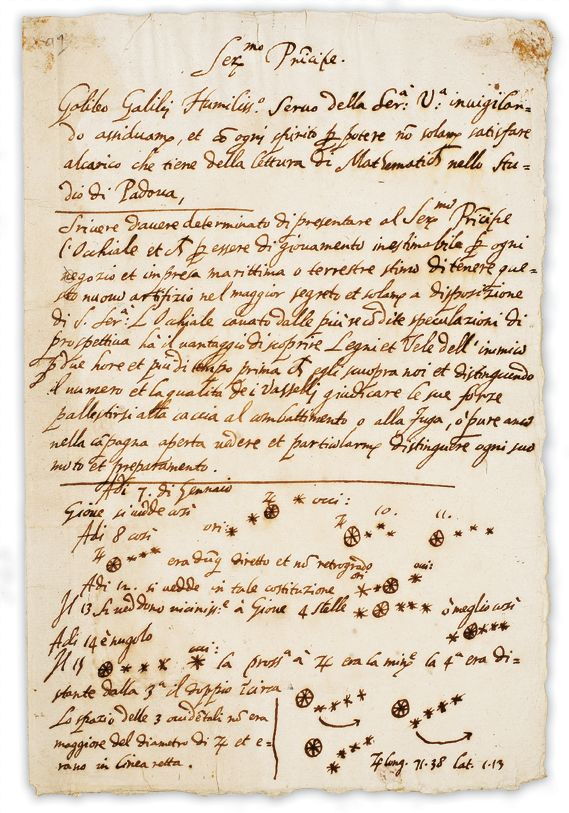 Ser.mo Principe.
Galileo Galilei Humiliss.o Servo della Ser.a V.a invigilan-
do assiduam.e, et cō ogni spirito ꝑ potere nō solam.e satisfare
al carico che tiene della lettura di Mathematica nello Stu-
dio di Padova,
Scrivere d'avere determinato di presentare al Ser.mo Prīcipe
l'Occhiale et ꝑ essere di giovamento inestimabile ꝑ ogni
negozio et impresa marittima o terrestre stimo di tenere que-
sto nuovo artifizio nel maggior segreto et solam.e a disposizione
di S. Ser.a L'Occhiale cavato dalle più recōdite speculazioni di
prospettiva hà il vantaggio di scoprire Legni et Vele dell'inimico
ꝑ due hore et più di tempo prima egli scuopra noi et distinguendo
il numero et la qualità de i Vasselli giudicare le sue forze
pallestirsi alla caccia al combattimento o alla fuga, ò pure anco
nella cāpagna aperta vedere et particolarm.e distinguere ogni suo
moto et preparamento.
Adi 7. di Gennaio
Giove si vedde così occi:
Adi 8 così ori: 10. 11.
era dūq diretto et nō retrogrado
Adi 12. si vedde in tale costituzione ori occi:
Il 13 si veddono vicinis.e à Giove 4 stelle ò meglio così
Adi 14 è nugolo
Il 15 occi: la pross.a à ♃ era la min.e la 4.a era di-
stante dalla 3.a il doppio circa
Lo spazio delle 3 occidētali nō era
maggiore del diametro di ♃ et e-
rano in linea retta.
♃ long. 71.38 lat. 1.13